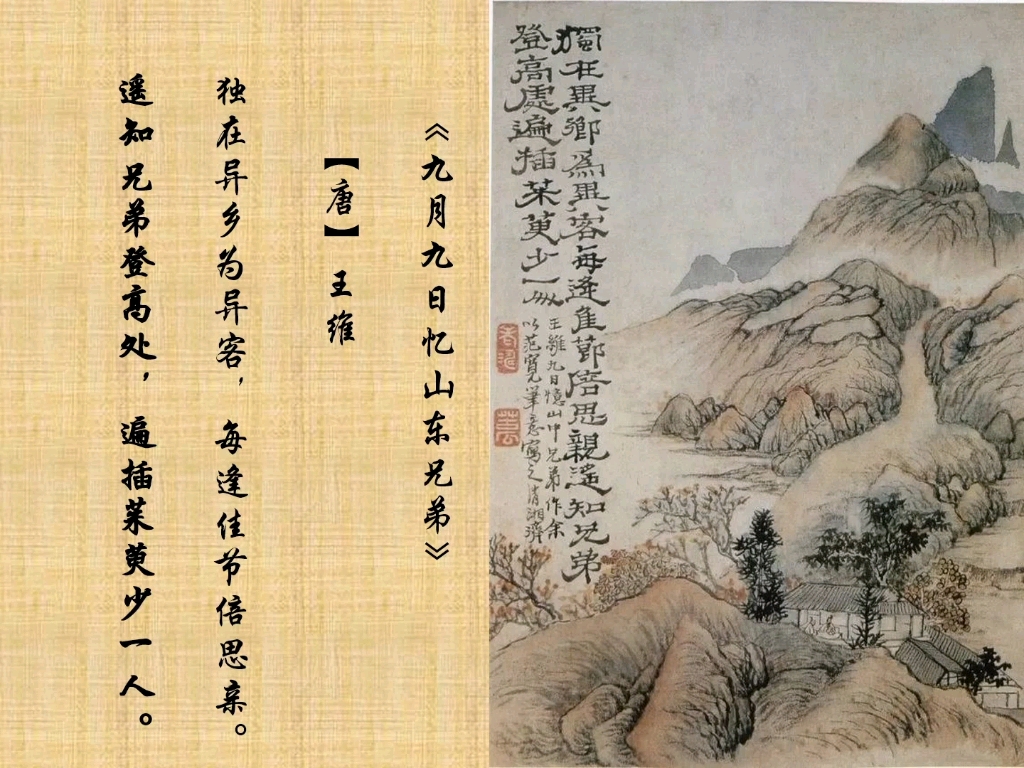 《九月九日忆山东兄弟》
【唐】 王维
独在异乡为异客，每逢佳节倍思亲。
遥知兄弟登高处，遍插茱萸少一人。
獨在異鄉為異客每逢佳節倍思親遙知兄弟
登高處遍插茱萸少一人
王維九日憶山中兄弟作余
以范寬筆意寫之清湘濟